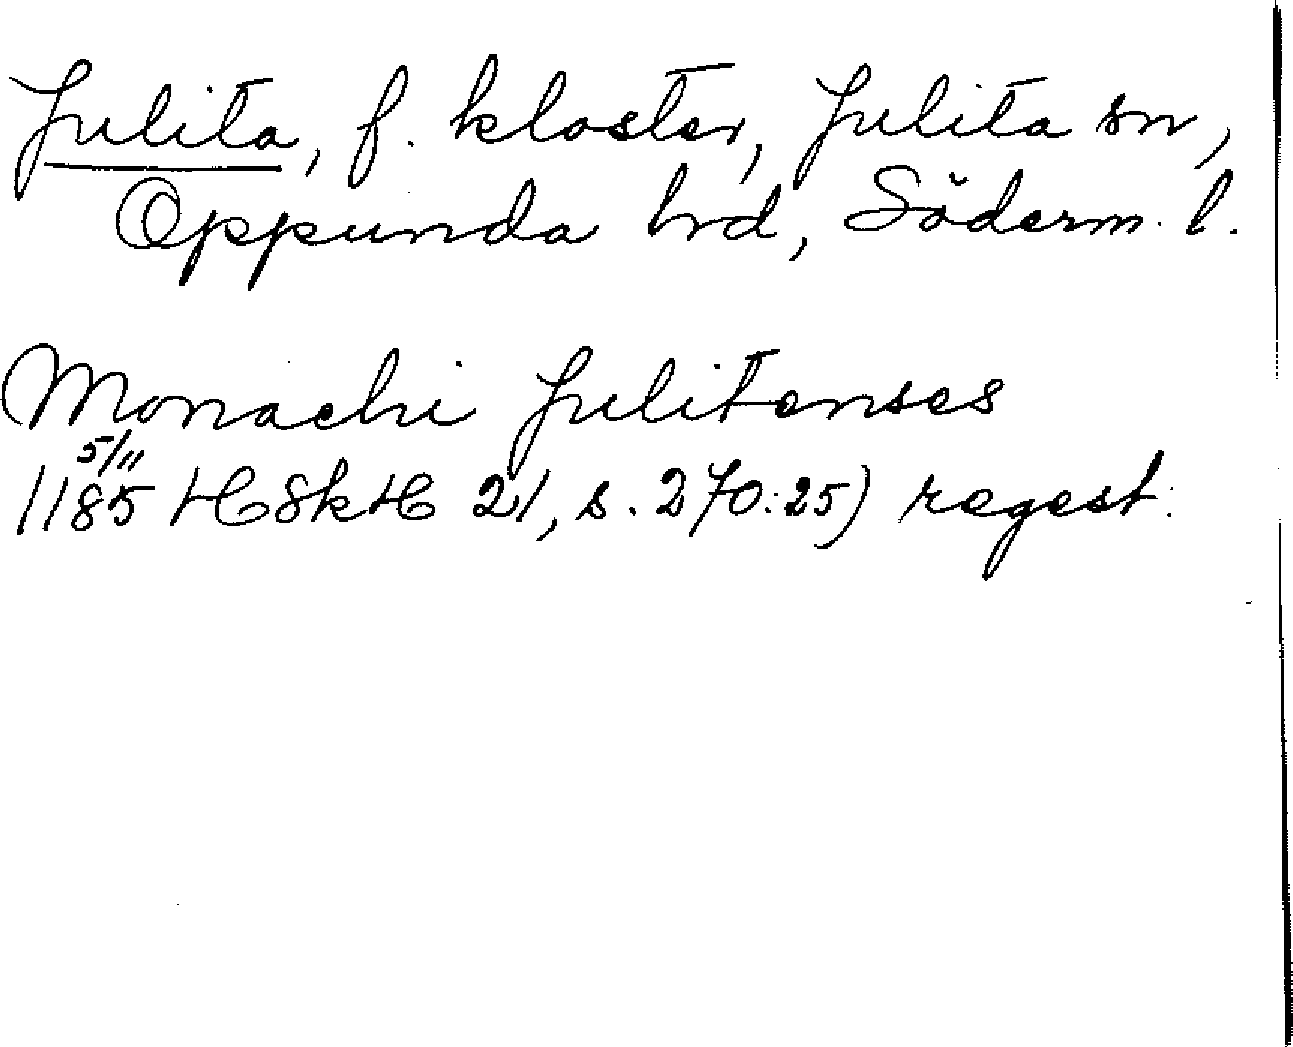 Julita, f. kloster, Julita sn,
Oppunda hrd, Söderm. l.
Monachi Julitenses
5/11
1185 HSkH 21, s. 270:25) regest.